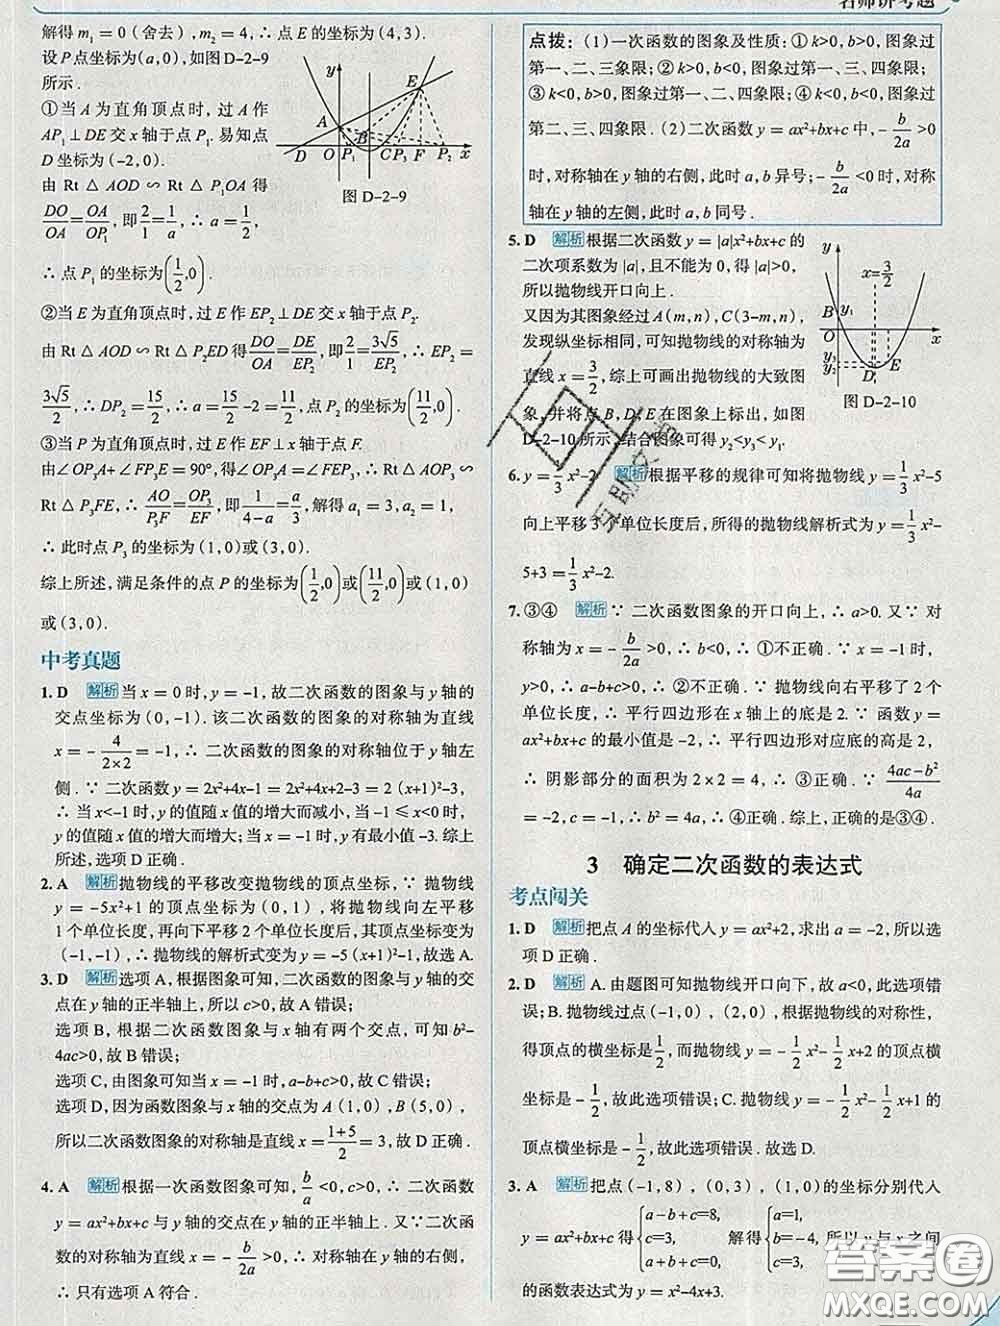 名师讲考题
解得 m₁=0(舍去),m₂=4,∴点 E 的坐标为(4,3).
设 P 点坐标为(a,0),如图 D-2-9
所示.
①当 A 为直角顶点时,过 A 作
AP₁⊥DE 交 x 轴于点 P₁.易知点
D 坐标为(-2,0).
由 Rt△AOD∽Rt△P₁OA 得
DO/OA=OA/OP₁,即2/1=1/a,∴a=1/2,
y
E
A
B
D O P₁ C P₃ F P₂ x
图 D-2-9
∴点 P₁ 的坐标为(1/2,0).
②当 E 为直角顶点时,过 E 作 EP₂⊥DE 交 x 轴于点 P₂.
由 Rt△AOD∽Rt△P₂ED 得DO/OA=DE/EP₂,即2/1=3√5/EP₂,∴EP₂=
3√5/2,∴DP₂=15/2,∴a=15/2-2=11/2,点 P₂ 的坐标为(11/2,0).
③当 P 为直角顶点时,过 E 作 EF⊥x 轴于点 F.
由∠OP₃A+∠FP₃E=90°,得∠OP₃A=∠FEP₃,∴Rt△AOP₃∽
Rt△P₃FE,∴AO/P₃F=OP₃/EF,即1/(4-a)=a/3,解得 a₁=3,a₂=1,
∴此时点 P₃ 的坐标为(1,0)或(3,0).
综上所述,满足条件的点 P 的坐标为(1/2,0)或(11/2,0)或(1,0)
或(3,0).
中考真题
1. D 解析 当 x=0 时,y=-1,故二次函数的图象与 y 轴的
交点坐标为(0,-1).该二次函数的图象的对称轴为直线
x=-4/(2×2)=-1,∴二次函数的图象的对称轴位于 y 轴左
侧.∵二次函数 y=2x²+4x-1=2x²+4x+2-3=2(x+1)²-3,
∴当 x<-1 时,y 的值随 x 值的增大而减小,当-1≤x<0 时,y
的值随 x 值的增大而增大;当 x=-1 时,y 有最小值-3.综上
所述,选项 D 正确.
2. A 解析 抛物线的平移改变抛物线的顶点坐标,∵抛物线
y=-5x²+1 的顶点坐标为(0,1),将抛物线向左平移
1 个单位长度,再向下平移 2 个单位长度后,其顶点坐标变为
(-1,-1),∴抛物线的解析式变为 y=-5(x+1)²-1,故选 A.
3. D 解析 选项 A,根据图象可知,二次函数的图象与 y 轴的交
点在 y 轴的正半轴上,所以 c>0,故 A 错误;
选项 B,根据二次函数图象与 x 轴有两个交点,可知 b²-
4ac>0,故 B 错误;
选项 C,由图象可知当 x=-1 时,a-b+c>0,故 C 错误;
选项 D,因为函数图象与 x 轴的交点为 A(1,0),B(5,0),
所以二次函数图象的对称轴是直线 x=(1+5)/2=3,故 D 正确.
4. A 解析 根据一次函数图象可知,b/a<0,c>0,∴二次函数
y=ax²+bx+c 与 y 轴的交点在 y 轴的正半轴上.又∵二次函
数的对称轴为直线 x=-b/2a>0,∴对称轴在 y 轴的右侧,
∴只有选项 A 符合.
点拨:(1)一次函数的图象及性质:①k>0,b>0,图象过
第一、二、三象限;②k>0,b<0,图象过第一、三、四象限;
③k<0,b>0,图象过第一、二、四象限;④k<0,b<0,图象过
第二、三、四象限.(2)二次函数 y=ax²+bx+c 中,-b/2a>0
时,对称轴在 y 轴的右侧,此时 a,b 异号;-b/2a<0 时,对称
轴在 y 轴的左侧,此时 a,b 同号.
5. D 解析 根据二次函数 y=|a|x²+bx+c 的
二次项系数为|a|,且不能为 0,得|a|>0,
所以抛物线开口向上.
又因为其图象经过 A(m,n),C(3-m,n),
发现纵坐标相同,可知抛物线的对称轴为
直线 x=3/2,综上可画出抛物线的大致图
象,并将点 B,D,E 在图象上标出,如图
D-2-10 所示,结合图象可得 y₂<y₃<y₁.
y
x=3/2
B y₁
O x
y₃ E
y₂ D
图 D-2-10
6. y=1/3x²-2 解析 根据平移的规律可知将抛物线 y=1/3x²-5
向上平移 3 个单位长度后,所得的抛物线解析式为 y=1/3x²-
5+3=1/3x²-2.
7. ③④ 解析 ∵二次函数图象的开口向上,∴a>0.又∵对
称轴为 x=-b/2a>0,∴b<0,∴①不正确.∵x=-1 时,
y>0,∴a-b+c>0,∴②不正确.∵抛物线向右平移了 2 个
单位长度,∴平行四边形在 x 轴上的底是 2.∵函数 y=
ax²+bx+c 的最小值是-2,∴平行四边形对应底的高是 2,
∴阴影部分的面积为 2×2=4,∴③正确.∵(4ac-b²)/4a
=-2,c=-1,∴b²=4a,∴④正确.综上,正确的是③④.
3 确定二次函数的表达式
考点闯关
1. D 解析 把点 A 的坐标代入 y=ax²+2,求出 a=-2,所以选
项 D 正确.
2. D 解析 A.由题图可知抛物线开口向下,故 a<0,此选项错
误;B.抛物线过点(-1,0),(2,0),根据抛物线的对称性,
得顶点的横坐标是1/2,而抛物线 y=-1/2x²-1/2x+2 的顶点横
坐标是-1/2,故此选项错误;C.抛物线 y=-1/2x²-1/2x+1 的
顶点横坐标是-1/2,故此选项错误.故选 D.
3. A 解析 把点(-1,8),(0,3),(1,0)的坐标分别代入
y=ax²+bx+c 得{a-b+c=8, c=3, a+b+c=0, 解得{a=1, b=-4, c=3, 所以 y 与 x 之间
的函数表达式为 y=x²-4x+3.
答案圈
MXQE.COM